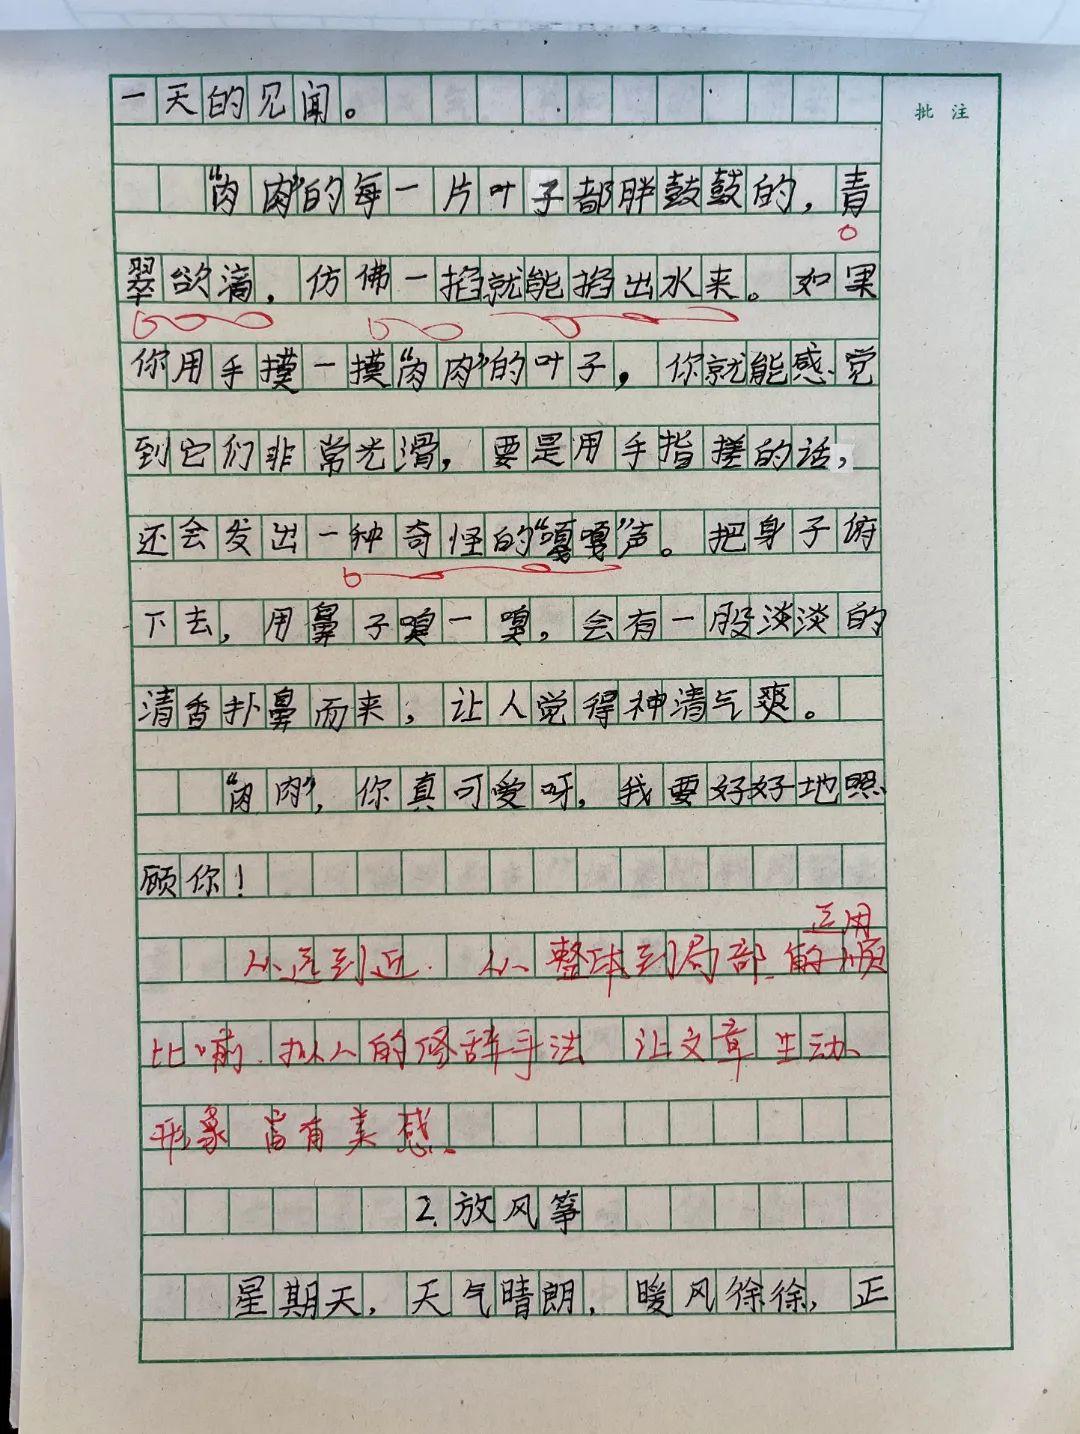 一天的见闻。
批注
“肉肉”的每一片叶子都胖鼓鼓的，青
翠欲滴，仿佛一掐就能掐出水来。如果
你用手摸一摸“肉肉”的叶子，你就能感觉
到它们非常光滑，要是用手指搓的话，
还会发出一种奇怪的“嘎嘎”声。把身子俯
下去，用鼻子嗅一嗅，会有一股淡淡的
清香扑鼻而来，让人觉得神清气爽。
“肉肉”，你真可爱呀，我要好好地照
顾你！
运用
从远到近.从整体到局部.的顺
比喻.拟人的修辞手法 让文章生动
形象 富有美感.
2.放风筝
星期天，天气晴朗，暖风徐徐，正